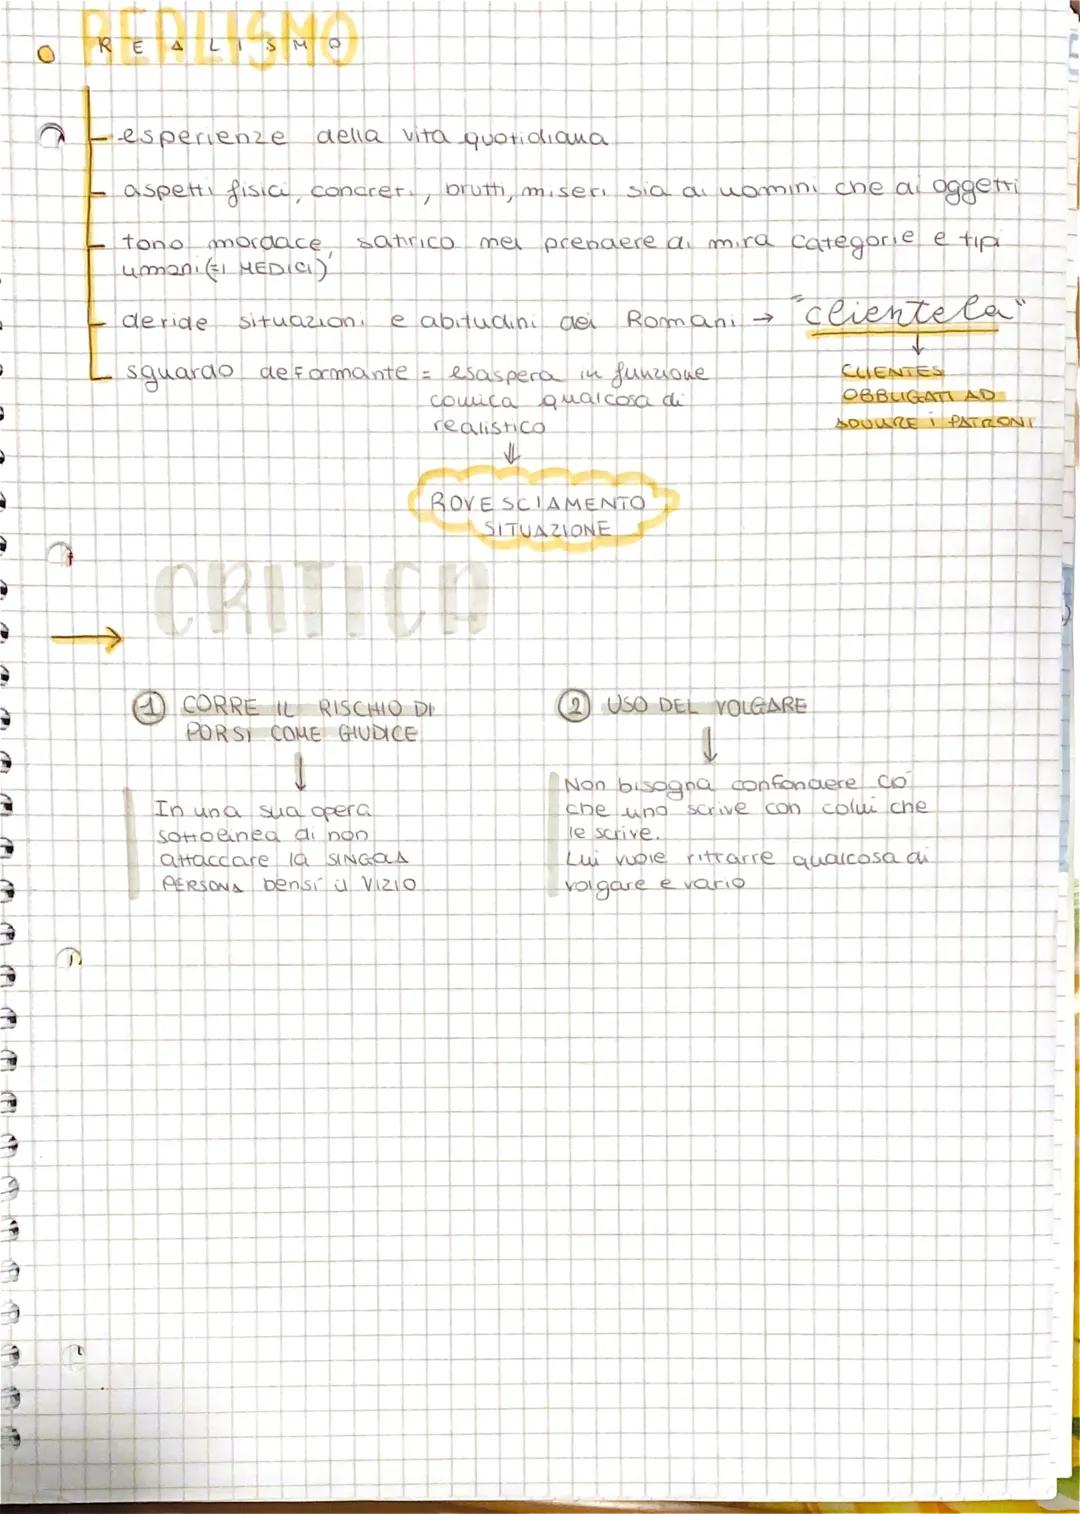 REALISMO
esperienze della vita quotidiana
aspetti fisici, concreti, brutti, miseri sia di uomini che di oggetti
tono mordace, satirico nel prendere di mira categorie e tipi
umani (=I MEDICI)
deride situazioni e abitudini dei Romani → "clientela"
↓
CLIENTES
OBBLIGATI AD
ADULARE i PATRONI
sguardo deformante = esaspera in funzione
comica qualcosa di
realistico
⇓
ROVESCIAMENTO
SITUAZIONE
→ CRITICA
① CORRE IL RISCHIO DI
PORSI COME GIUDICE
↓
In una sua opera
sottolinea di non
attaccare la SINGOLA
PERSONA bensì il VIZIO
② USO DEL VOLGARE
↓
Non bisogna confondere ciò
che uno scrive con colui che
le scrive.
Lui vuole ritrarre qualcosa di
volgare e vario